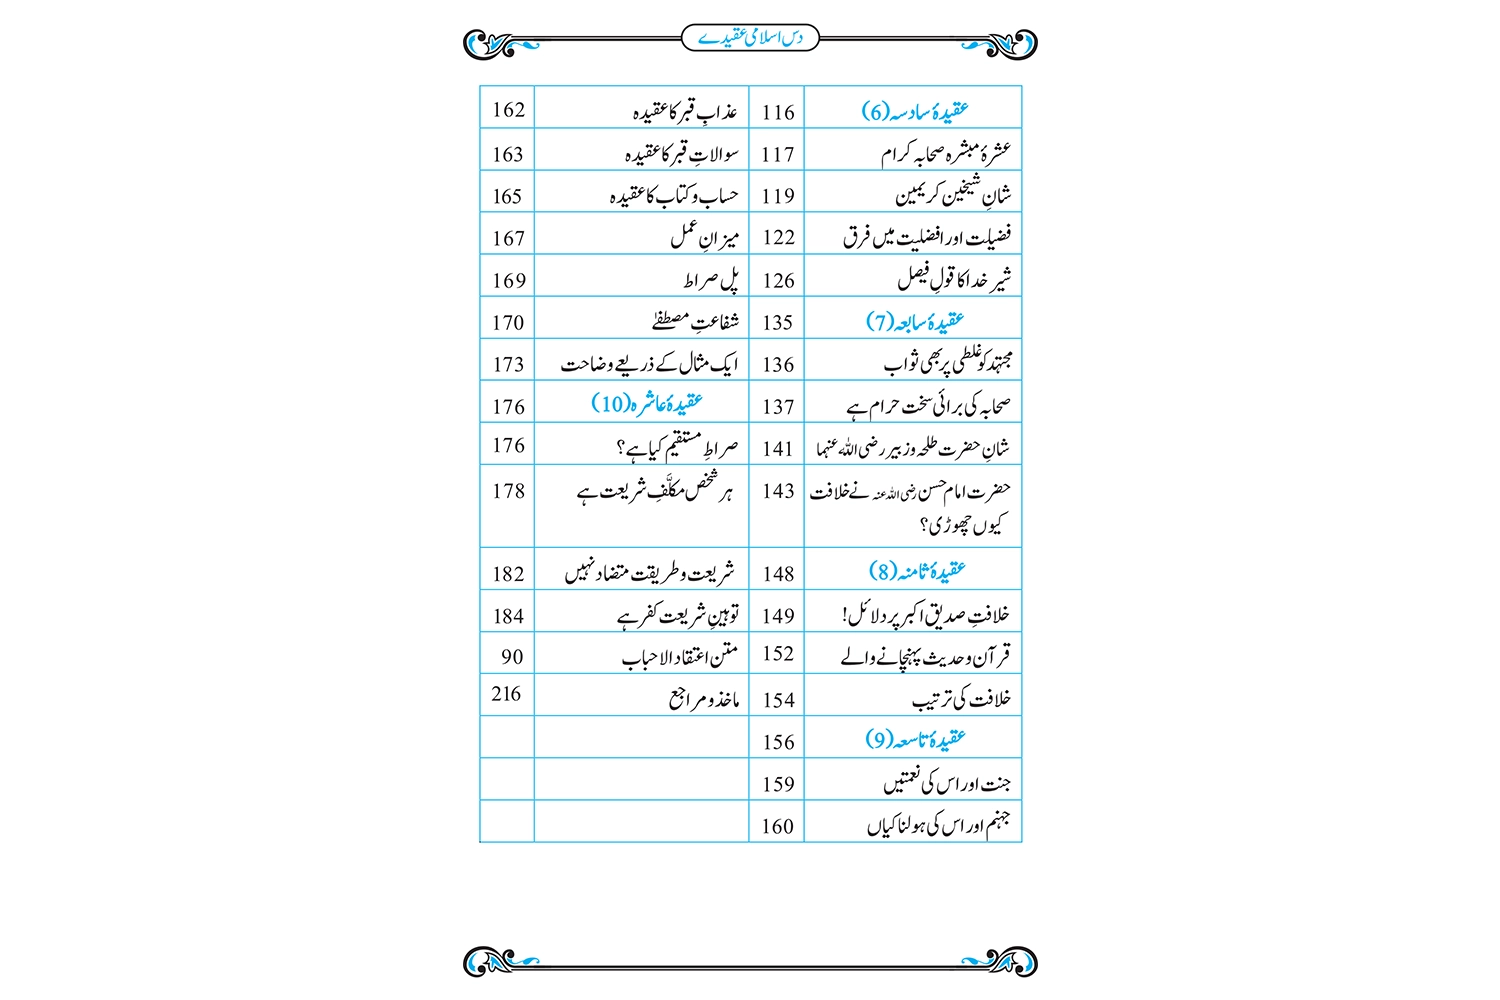 دس اسلامی عقیدے
عقیدۂ سادسہ (6) 116
عشرۂ مبشرہ صحابہ کرام 117
شانِ شیخین کریمین 119
فضیلت اور افضلیت میں فرق 122
شیر خدا کا قولِ فیصل 126
عقیدۂ سابعہ (7) 135
مجتہد کو غلطی پر بھی ثواب 136
صحابہ کی برائی سخت حرام ہے 137
شانِ حضرت طلحہ و زبیر رضی اللہ عنہما 141
حضرت امام حسن رضی اللہ عنہ نے خلافت 143
کیوں چھوڑی؟
عقیدۂ ثامنہ (8) 148
خلافتِ صدیق اکبر پر دلائل! 149
قرآن و حدیث پہنچانے والے 152
خلافت کی ترتیب 154
عقیدۂ تاسعہ (9) 156
جنت اور اس کی نعمتیں 159
جہنم اور اس کی ہولناکیاں 160
عذابِ قبر کا عقیدہ 162
سوالاتِ قبر کا عقیدہ 163
حساب و کتاب کا عقیدہ 165
میزانِ عمل 167
پل صراط 169
شفاعتِ مصطفےٰ 170
ایک مثال کے ذریعے وضاحت 173
عقیدۂ عاشرہ (10) 176
صراطِ مستقیم کیا ہے؟ 176
ہر شخص مکلَّفِ شریعت ہے 178
شریعت و طریقت متضاد نہیں 182
توہینِ شریعت کفر ہے 184
متن اعتقاد الاحباب 90
ماخذ و مراجع 216